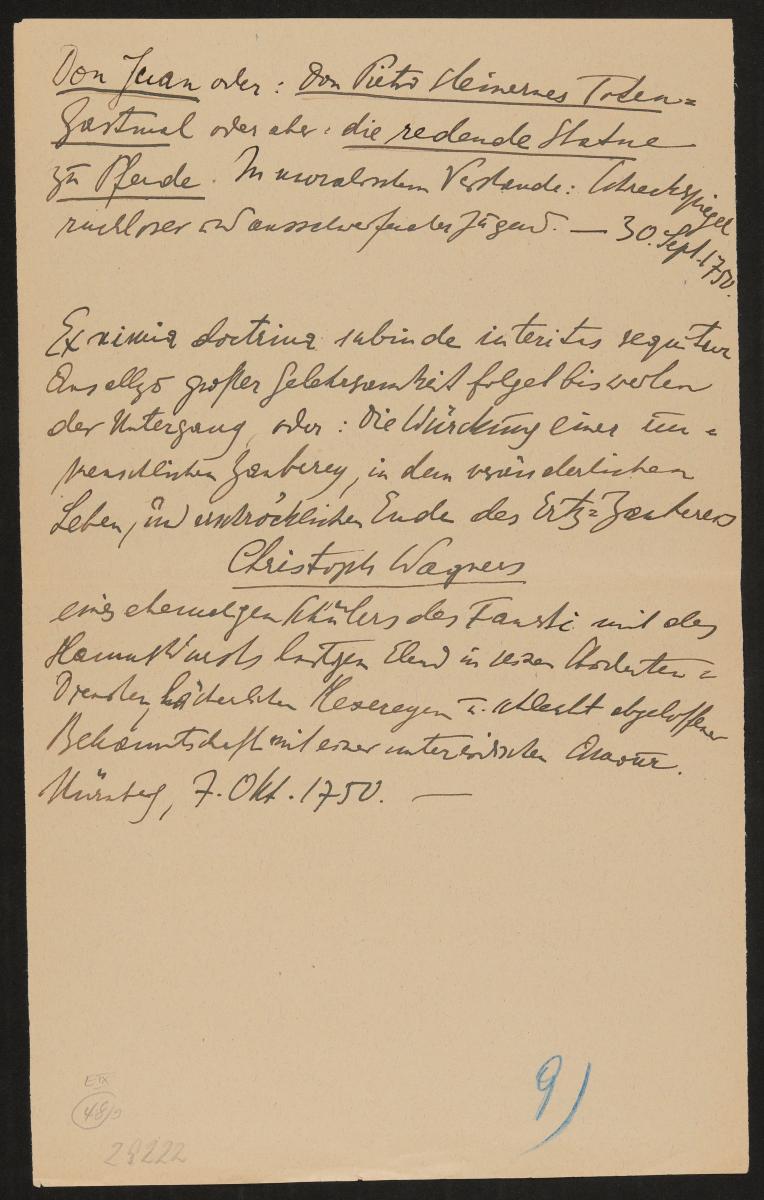 Don Juan oder: Don Pietro steinernes Toten=
Gastmal oder aber: die redende Statue
zu Pferde. In moralischem Verstande: Schreckspiegel
ruchloser und ausschweifender Jugend. — 30. Sept. 1750.
Eximia doctrina subinde interitus sequitur
Aus allzu großer Gelehrsamkeit folget bisweilen
der Untergang, oder: Die Würckung einer un=
menschlichen Zauberey, in dem veränderlichen
Leben, und erschröcklichen Ende des Ertz=Zauberers
Christoph Wagners
eines ehemaligen Schülers des Fausti mit des
Hannswursts lustigen Elend in seinen Studenten=
Diensten, lächerlichen Hexereyen u. schlecht abgeloffener
Bekanntschaft mit einer unterirdischen Amour.
Nürnberg, 7. Okt. 1750. —
9)
E IX
48/9
28222